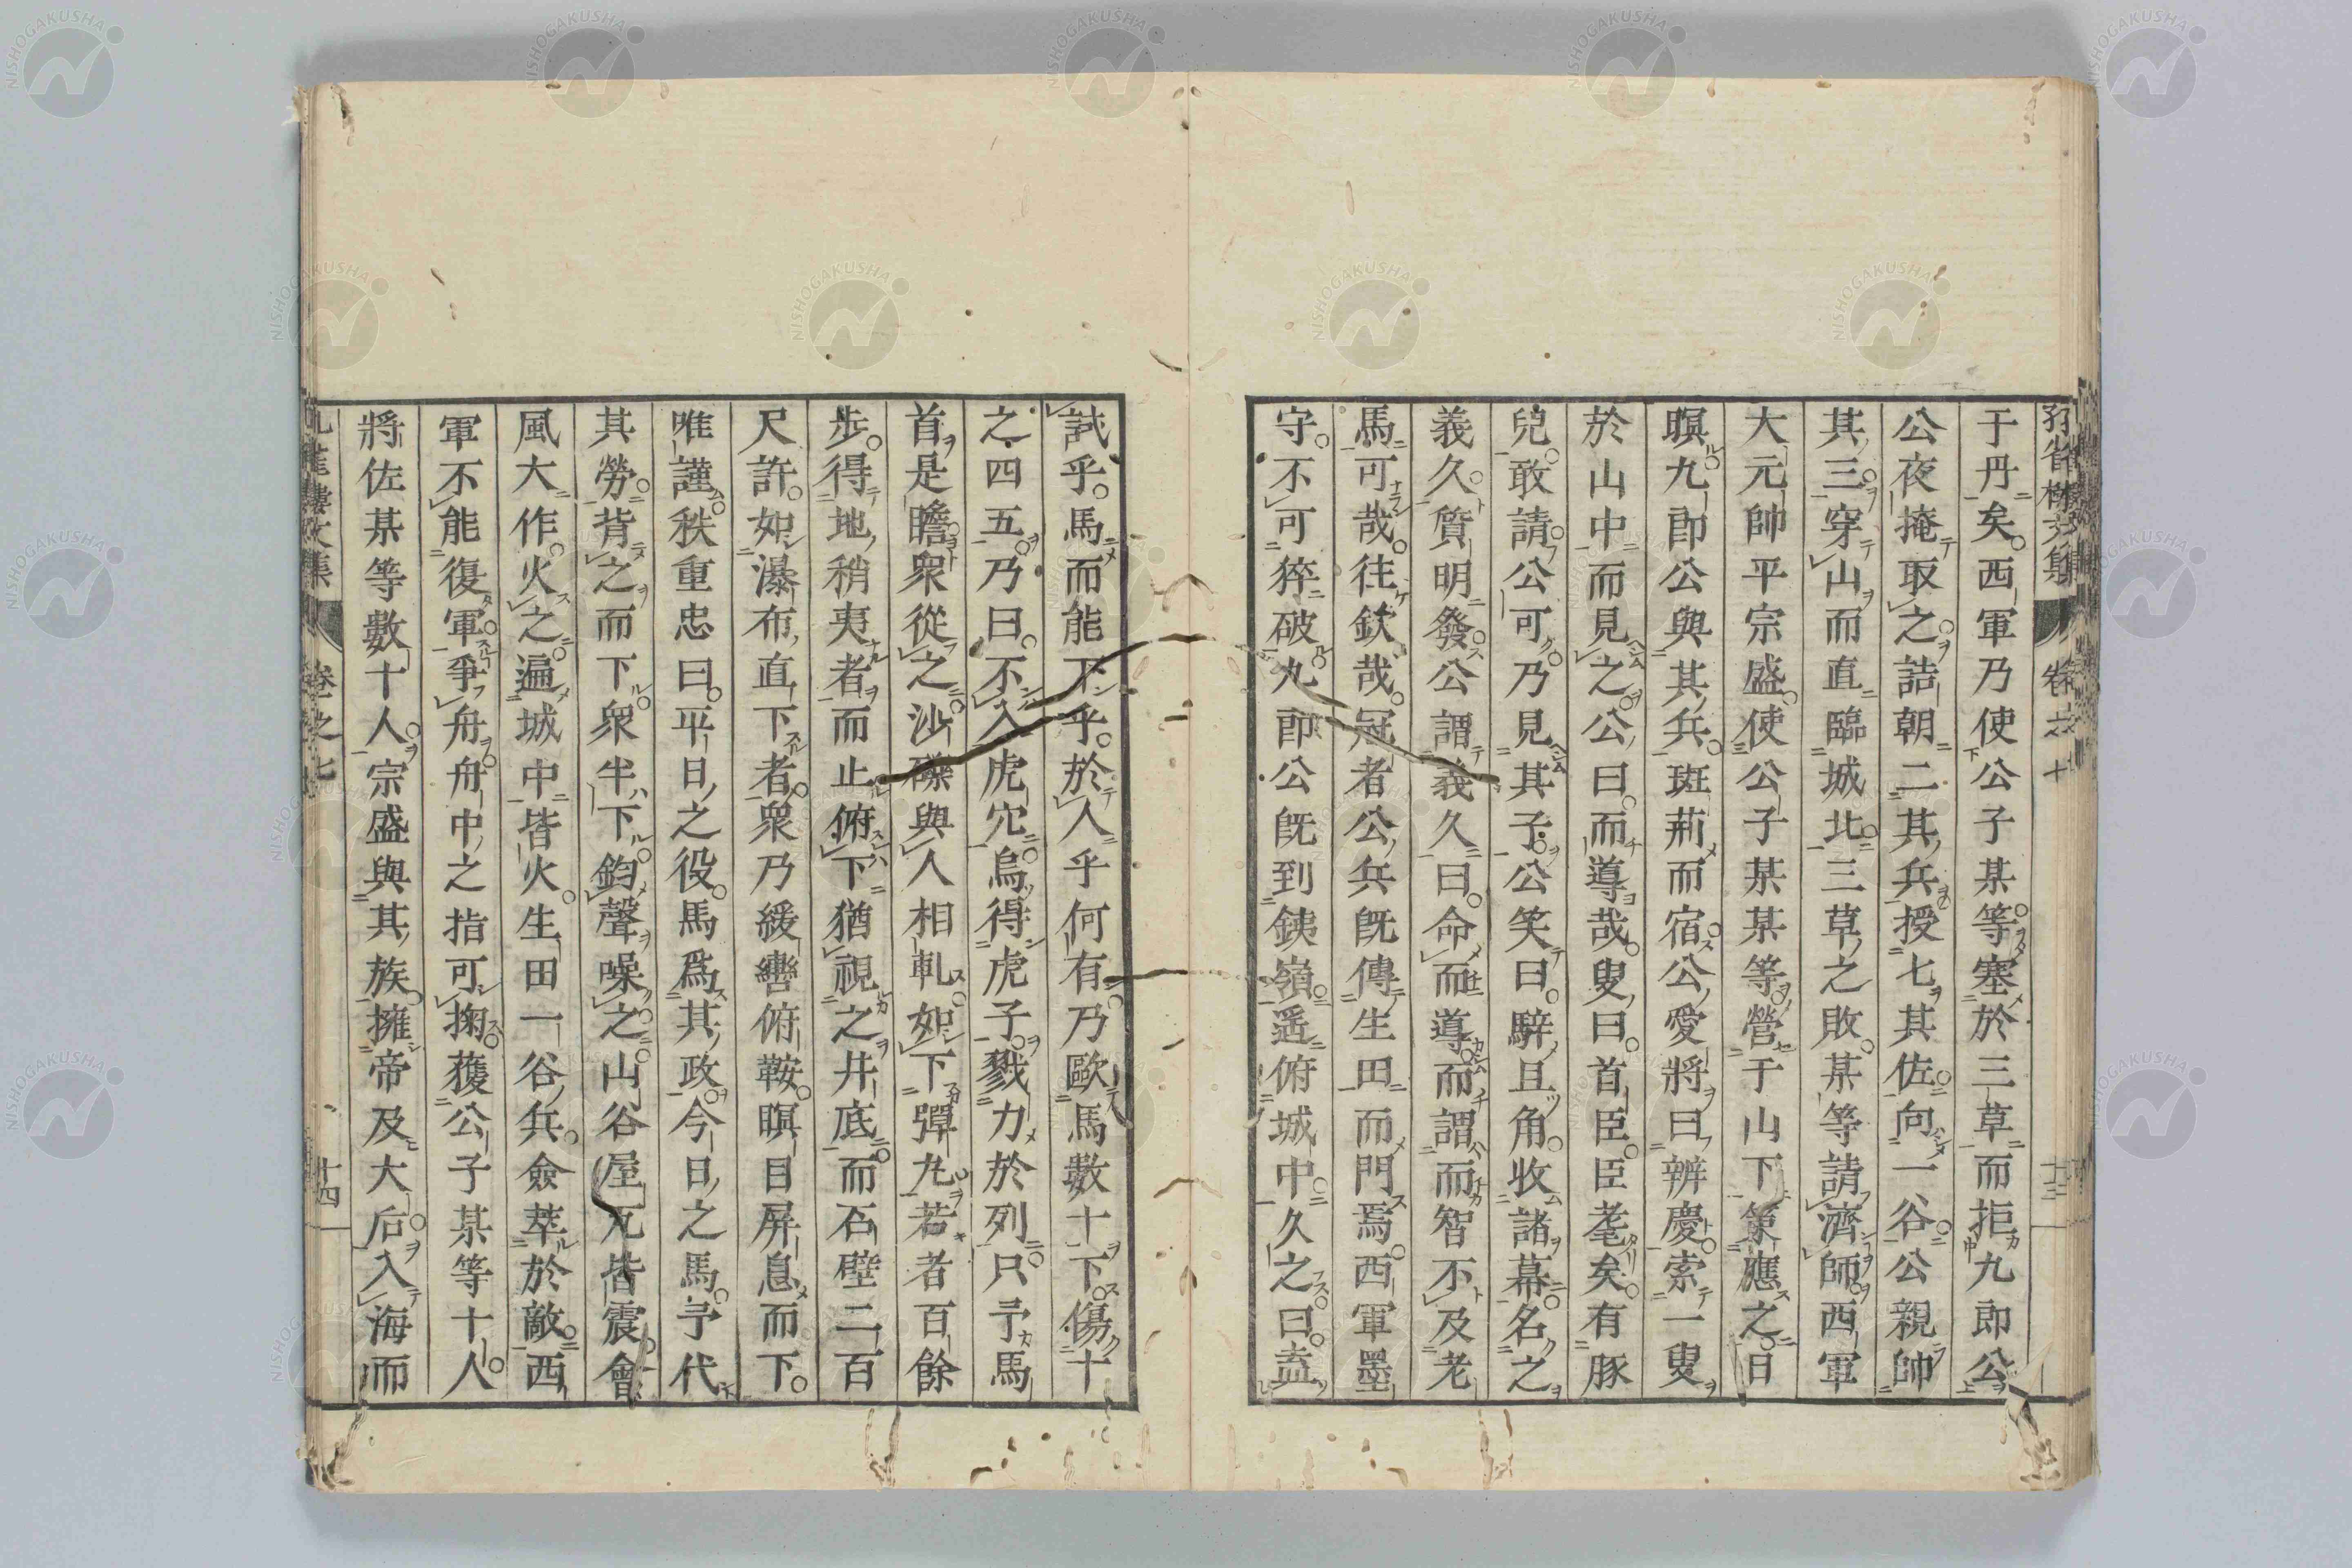 于丹矣西軍乃使公子某等塞於三草而拒九郎公
公夜掩取之詰朝二其兵授七其佐向一谷公親帥
其三穿山而直臨城北三草之敗某等請濟師西軍
大元帥平宗盛使公子某某等營于山下策應之日
暝九郎公與其兵班荊而宿公愛將曰辨慶索一叟
於山中而見之公曰而導哉叟曰首臣臣耄矣有豚
兒敢請公可乃見其子公笑曰騂且角收諸幕名之
義久質明發公謂義久曰命而導而謂而智不及老
馬可哉往欽哉冠者公兵既傳生田而門焉西軍墨
守不可猝破九郎公既到鉄嶺遥俯城中久之曰盍
試乎馬而能下乎於人乎何有乃歐馬數十下傷十
之四五乃曰不入虎穴烏得虎子戮力於列只予馬
首是瞻衆從之沙礫與人相軋如下彈丸若者百餘
步得地稍夷者而止俯下猶視之井底而石壁二百
尺許如瀑布直下者衆乃緩轡俯鞍暝目屏息而下
唯謹秩重忠曰平日之役馬爲其政今日之馬予代
其勞背之而下衆半下鈞聲噪之山谷屋瓦皆震會
風大作火之遍城中皆火生田一谷兵僉萃於敵西
軍不能復軍爭舟舟中之指可掬獲公子某等十人
將佐某等數十人宗盛與其族擁帝及大后入海而
卷之七
十四
NISHOGAKUSHA